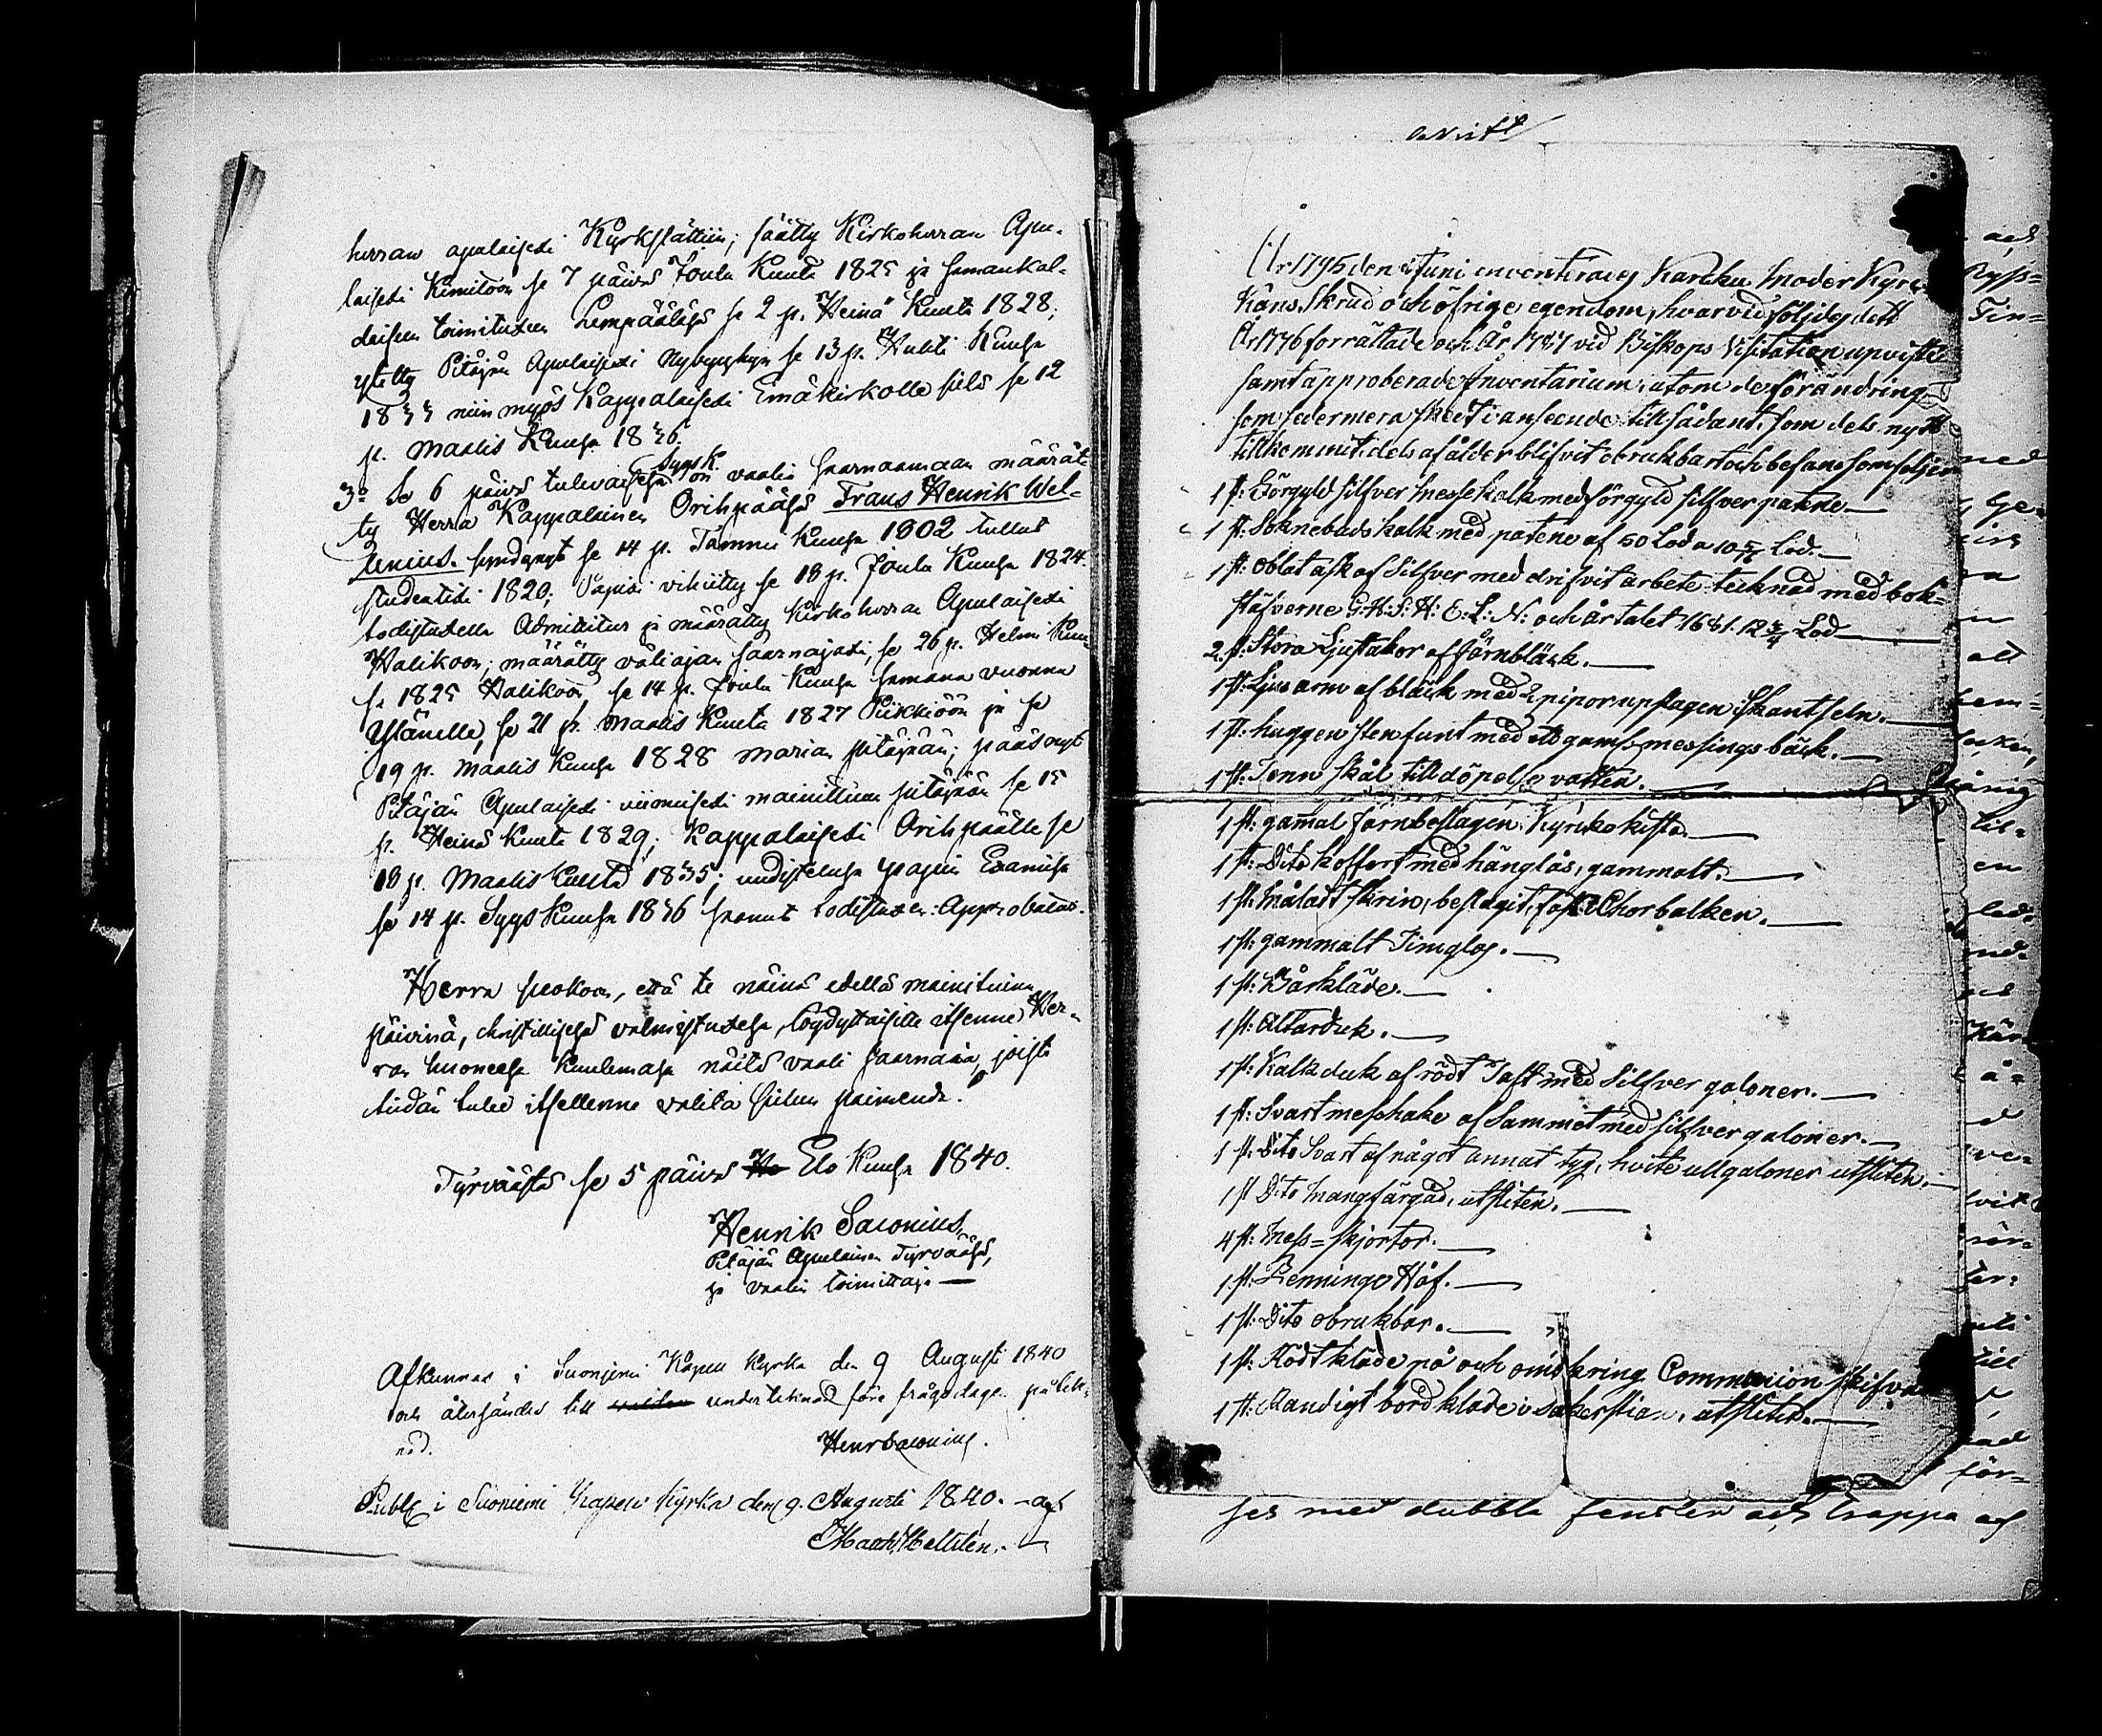 herran apulaiseksi Kyrkslättiin; säätty Kirkoherran Apu-
laiseksi Kimitoon se 7 päivä Joulu Kuuta 1825 ja samankal-
daiseen toimitukseen Lempäälässä se 2 p. Heinä Kuuta 1828;
yletty Pitäjän Apulaiseksi se 13 p. Huhti Kuussa
1833 niin myös Kappalaiseksi Emäkirkolle siellä se 12
p. Maalis Kuussa 1836.
3:o Se 6 päivä tulevaisessa Syysk. on vaali saarnaamaan määrät-
ty Herra Kappalainen Orihpäässä Frans Henrik Wel-
lenius. syndynyt se 14 p. Tammi Kuussa 1802 tullut
studentiksi 1820; Papiksi vihitty se 18 p. Joulu Kuussa 1824.
todistuxella Admittitur ja määrätty Kirkoherran Apulaiseksi
Halikoon; määrätty väliajan saarnajaksi, se 26 p. Helmi Kuu-
sa 1825 Halikoon, se 14 p. Joulu Kuussa samana vuonna
Yläneelle, se 21 p. Maalis Kuuta 1827 Piikkiöön ja se
19 p. Maalis Kuussa 1828 Marian pitäjään; päässyt
Pitäjän Apulaiseksi viimeiseksi mainittuun pitäjään se 15
p. Heinä Kuuta 1829; Kappalaiseksi Orihpäälle se
18 p. Maalis Kuuta 1835; uudistetussa papin Examissa
se 14 p. Syys Kuussa 1836 saanut todistuxen: Approbatur.
Herra suokoon, että te näinä edellä mainittuina
päivinä, christillisessä valmistuxessa, löydyttäisitte itsenne Her-
ran huoneessa Kuulemassa näitä vaali saarnoia, joista
teidän tulee itsellenne valita sielun paimenda.
Tyrväästä se 5 päivä He Elo Kuussa 1840.
Henrik Saconius,
Pitäjän Apulainen Tyrväässä,
ja vaalin toimittaja
Afkunnas i Suoniemi Kapell Kyrka den 9 Augusti 1840
och återsändes till undertecknad före frågodagen påtek-
nad.
Henr Saconius.
Publ. i Suoniemi Kapell Kyrka den 9. Augusti 1840. -
Math: Mellilen.
År 1795 den Juni inventerades Karcku Moder Kyrc
Käns Skrud och öfrige egendom, hvarvid följdes dett
År 1776 forrättade och År 1787 vid Biskops Visitation upviste
samt approberade Inventarium, utom de förändring
som sedermera skedt i anseende till sådant, som dels nytt
tillkommit, dels af ålder blifvit obrukbart och befans som följer
1 st: Förgyld Silfver Messekalk med förgyld silfver patene
1 st: Soknebuds kalk med patene af 50 Lod a 10 5/6 Lod.
1 st: Oblat ask af Silfver med drifvit arbete tecknad med bok-
stäfverne G: H: S: H: E: L: N: och årtalet 1681. 12 3/4 Lod
2 st: Stora Ljustakor af järnbläck.
1 st: Ljusarm af bläck med 2 pipor upslagen i Skantseln.
1 st: huggen stenfunt med ett messings bäck.
1 st: Tenn skål till döpelse vatten.
1 st: gamal järnbeslagen Kyrcko kista.
1 st: Dito koffert med hänglås, gammalt.
1 st: Måladt skrin, beslagit, fast i Chorbalken.
1 st: gammalt Timglas.
1 st: Bårkläde.
1 st: Altarduk.
1 st: Kalkduk af rödt Taft med Silfver galoner.
1 st: Svart messhake af Sammet med silfver galoner.
1 st: Dito Svart af något annat tyg, hvite ullgaloner utsliten.
1 st Dito Mangfärgad, utsliten.
4 st: Mess-skjortor.
1 st: Penninge Håf.
1 st: Dito obrukbar.
1 st: Rödt kläde på och omkring Communion skifva
1 st: Randigt bordkläde i sakerstian, utslitet.
ses med dubbla fenster och trappa af